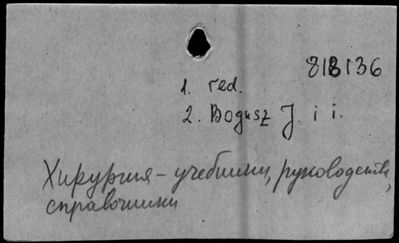 818136
1. red.
2. Bogusz J. i i.
Хирургия – учебники, руководства,
справочники